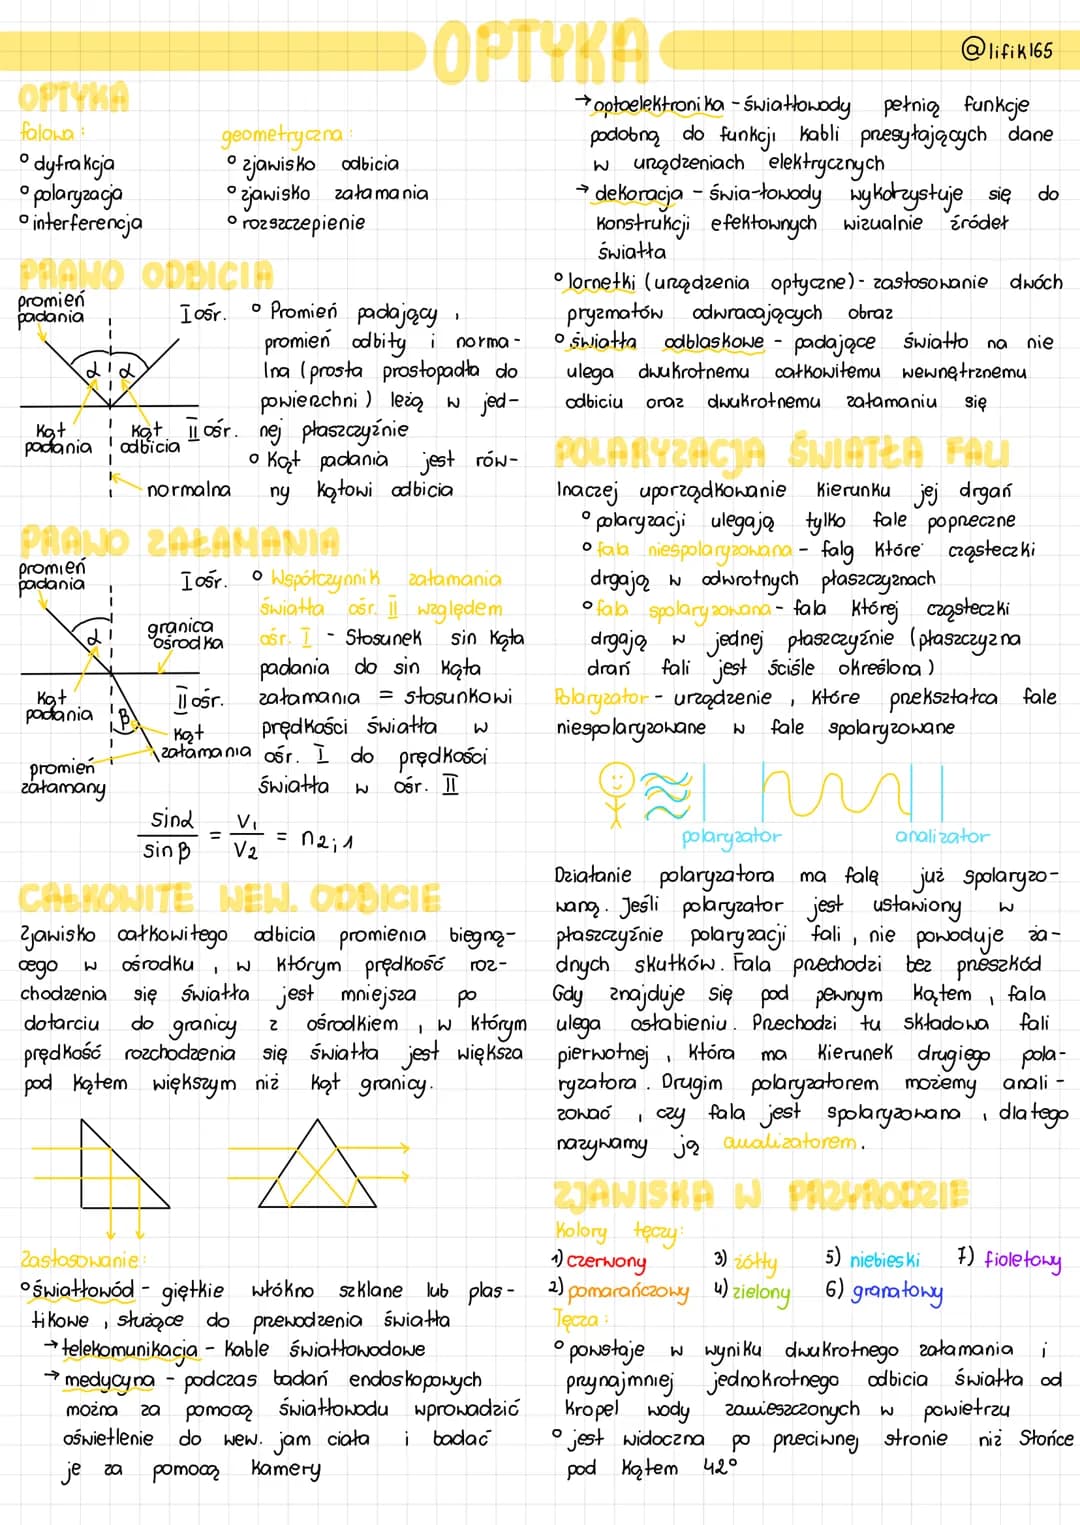 OPTYKA
@lifik165
OPTYKA
falowa:
° dyfrakcja
° polaryzacja
° interferencja
geometryczna:
° zjawisko odbicia
° zjawisko załamania
° rozszczepienie
PRAWO ODBICIA
promień
padania
I ośr.
α α
kąt
padania
kąt
odbicia
II ośr.
normalna
° Promień padający,
promień odbity i norma-
lna (prosta prostopadła do
powierzchni) leżą w jed-
nej płaszczyźnie
° Kąt padania jest rów-
ny kątowi odbicia
PRAWO ZAŁAMANIA
promień
padania
I ośr.
α
granica
ośrodka
kąt
padania
β
II ośr.
kąt
załamania
promień
załamany
° Współczynnik załamania
światła ośr. II względem
ośr. I - Stosunek sin kąta
padania do sin kąta
załamania = stosunkowi
prędkości światła w
ośr. I do prędkości
światła w ośr. II
sinα / sinβ = V₁ / V₂ = n₂;₁
CAŁKOWITE WEW. ODBICIE
Zjawisko całkowitego odbicia promienia biegną-
cego w ośrodku, w którym prędkość roz-
chodzenia się światła jest mniejsza po
dotarciu do granicy z ośrodkiem, w którym
prędkość rozchodzenia się światła jest większa
pod kątem większym niż kąt granicy.
Zastosowanie:
° światłowód - giętkie włókno szklane lub plas-
tikowe, służące do przewodzenia światła
→ telekomunikacja - kable światłowodowe
→ medycyna - podczas badań endoskopowych
można za pomocą światłowodu wprowadzić
oświetlenie do wew. jam ciała i badać
je za pomocą kamery
→ optoelektronika - światłowody pełnią funkcje
podobną do funkcji kabli przesyłających dane
w urządzeniach elektrycznych
→ dekoracja - świa-łowody wykorzystuje się do
konstrukcji efektownych wizualnie źródeł
światła
° lornetki (urządzenia optyczne) - zastosowanie dwóch
pryzmatów odwracających obraz
° światła odblaskowe - padające światło na nie
ulega dwukrotnemu całkowitemu wewnętrznemu
odbiciu oraz dwukrotnemu załamaniu się
POLARYZACJA ŚWIATŁA FALI
Inaczej uporządkowanie kierunku jej drgań
° polaryzacji ulegają tylko fale poprzeczne
° fala niespolaryzowana - falą które cząsteczki
drgają w odwrotnych płaszczyznach
° fala spolaryzowana - fala której cząsteczki
drgają w jednej płaszczyźnie (płaszczyzna
drań fali jest ściśle określona)
Polaryzator - urządzenie, które przekształca fale
niespolaryzowane w fale spolaryzowane
polaryzator
analizator
Działanie polaryzatora ma falę już spolaryzo-
waną. Jeśli polaryzator jest ustawiony w
płaszczyźnie polaryzacji fali, nie powoduje ża-
dnych skutków. Fala przechodzi bez przeszkód
Gdy znajduje się pod pewnym kątem, fala
ulega osłabieniu. Przechodzi tu składowa fali
pierwotnej, która ma kierunek drugiego pola-
ryzatora. Drugim polaryzatorem możemy anali-
zować, czy fala jest spolaryzowana, dlatego
nazywamy ją analizatorem.
ZJAWISKA W PRZYRODZIE
Kolory tęczy:
1) czerwony
3) żółty
5) niebieski
7) fioletowy
2) pomarańczowy
4) zielony
6) granatowy
Tęcza:
° powstaje w wyniku dwukrotnego załamania i
przynajmniej jednokrotnego odbicia światła od
kropel wody zawieszczonych w powietrzu
° jest widoczna po przeciwnej stronie niż Słońce
pod kątem 42°